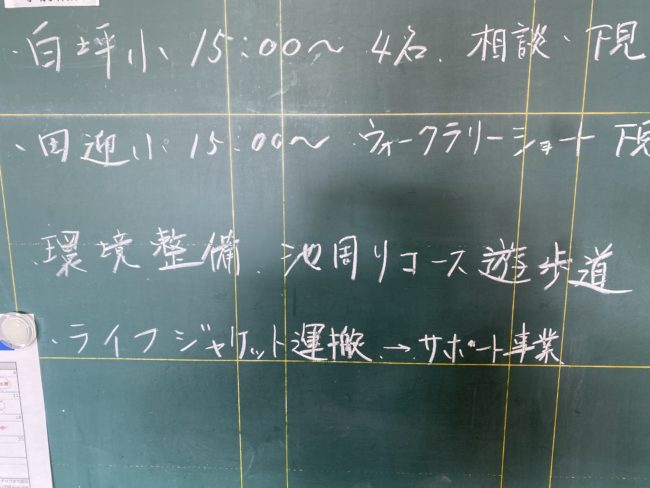 ・白坪小 15:00〜 4名. 相談・下見
・田迎小 15:00〜 ウォークラリーショート 下見
環境整備. 池周りコース遊歩道
・ライフジャケット運搬 → サポート事業